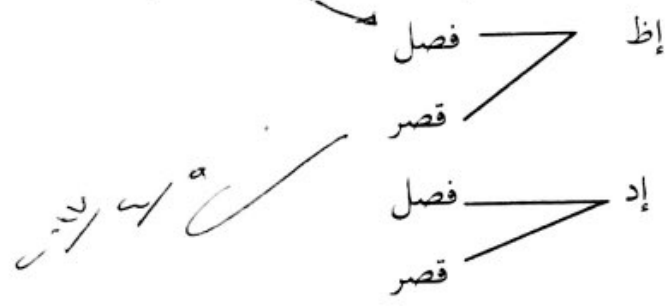 إظ فصل
قصر
إد فصل
قصر